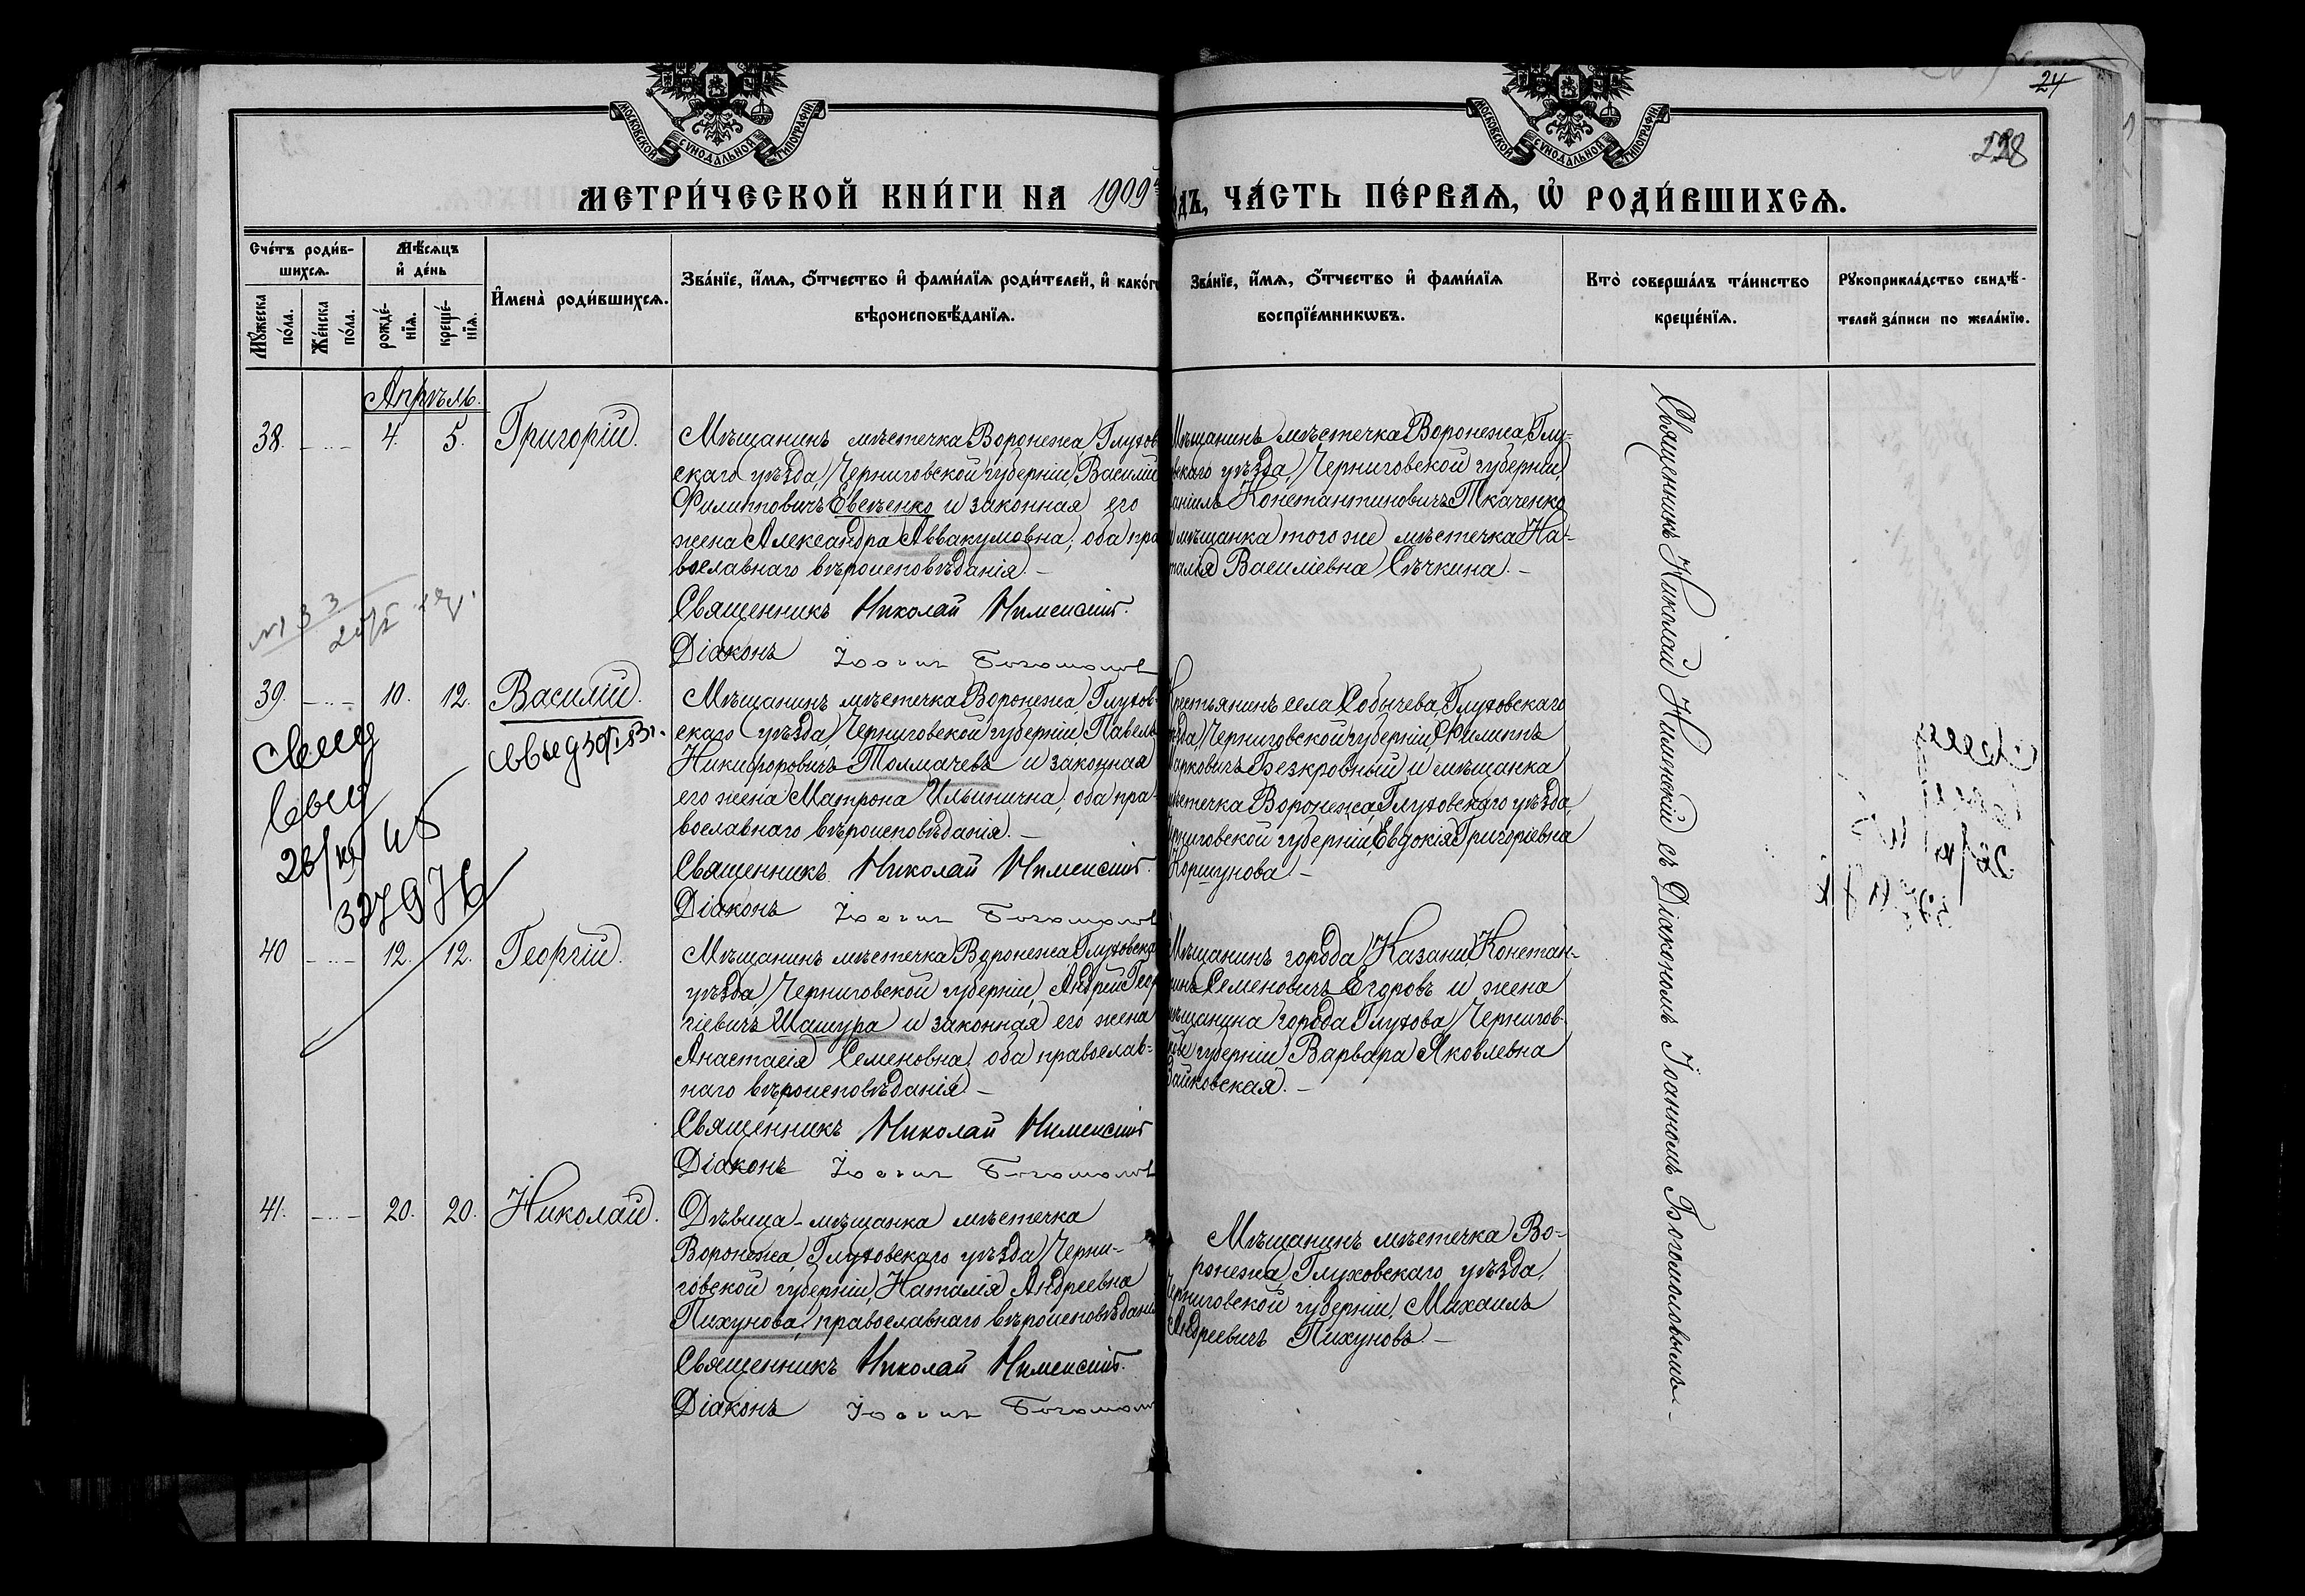 24
228
МОСКОВСКОЙ СѴНОДАЛЬНОЙ ТИПОГРАФІИ
МОСКОВСКОЙ СѴНОДАЛЬНОЙ ТИПОГРАФІИ
МЕТРИ́ЧЕСКОЙ КНИ́ГИ НА 1909 ОДЪ, ЧА́СТЬ ПЕ́РВАѦ, Ѡ҆ РОДИ́ВШИХСѦ.
Сче́тъ роди́в-
шихсѧ.
Мѣ́сѧцъ
и҆ де́нь
Мꙋ́жеска по́ла.
Же́нска по́ла.
рожде́-
нїѧ.
креще́-
нїѧ.
И҆мена̀ роди́вшихсѧ.
Зва́нїе, и҆́мѧ, ѻ҆́тчество и҆ фами́лїѧ роди́телей, и҆ како́г
вѣроисповѣ́данїѧ.
Зва́нїе, и҆́мѧ, ѻ҆́тчество и҆ фами́лїѧ
воспрїе́мникѡвъ.
Кто̀ соверша́лъ та́инство
креще́нїѧ.
Рꙋкоприкла́дство свидѣ́-
телей за́писи по жела́нїю.
Апрѣль.
38. 4. 5. Григорій.
Мѣщанинъ мѣстечка Воронежа, Глухов
скаго уѣзда, Черниговской губерніи, Василій
Филипповичъ Евсѣенко и законная его
жена Александра Аввакумовна; оба пра
вославнаго вѣроисповѣданія. –
Священникъ Николай Нименскій.
Діаконъ Іоаннъ Богомолов
Мѣщанинъ мѣстечка Воронежа, Глу-
вскаго уѣзда, Черниговской губерніи,
аніилъ Константиновичъ Ткаченко
и мѣщанка того же мѣстечка На-
талія Василіевна Сѣчкина. –
39. 10. 12. Василій.
Мѣщанинъ мѣстечка Воронежа, Глухов-
скаго уѣзда, Черниговской губерніи, Павелъ
Никифоровичъ Толмачевъ и законная
его жена Матрона Ильинична; оба пра-
вославнаго вѣроисповѣданія. –
Священникъ Николай Нименскій.
Діаконъ Іоаннъ Богомолов
Крестьянинъ села Собычева, Глуховскаго
ѣзда, Черниговской губерніи, Филиппъ
Марковичъ Безкровный и мѣщанка
мѣстечка Воронежа, Глуховскаго уѣзда,
Черниговской губерніи, Евдокія Григоріевна
Коршунова. –
327976
40 12. 12. Георгій.
Мѣщанинъ мѣстечка Воронежа, Глуховска
уѣзда, Черниговской губерніи, Андрей Геор
гіевичъ Шашура и законная его жена
Анастасія Семеновна; оба православ-
наго вѣроисповѣданія. –
Священникъ Николай Нименскій
Діаконъ Іоаннъ Богомолов
Мѣщанинъ города Казани, Констан-
тинъ Семеновичъ Егоровъ и жена
мѣщанина города Глухова, Чернигов-
губерніи Варвара Яковлевна
Зайковская. –
41. 20. 20. Николай.
Дѣвица-мѣщанка мѣстечка
Воронежа, Глуховскаго уѣзда, Черни-
говской губерніи, Наталія Андреевна
Пихунова, православнаго вѣроисповѣдані
Священникъ Николай Нименскій.
Діаконъ Іоаннъ Богомолов
Мѣщанинъ мѣстечка Во-
ронежа, Глуховскаго уѣзда,
Черниговской губерніи, Михаилъ
Андреевичъ Пихуновъ –
Священникъ Николай Нименскій съ Діакономъ Іоанномъ Богомоловымъ. –